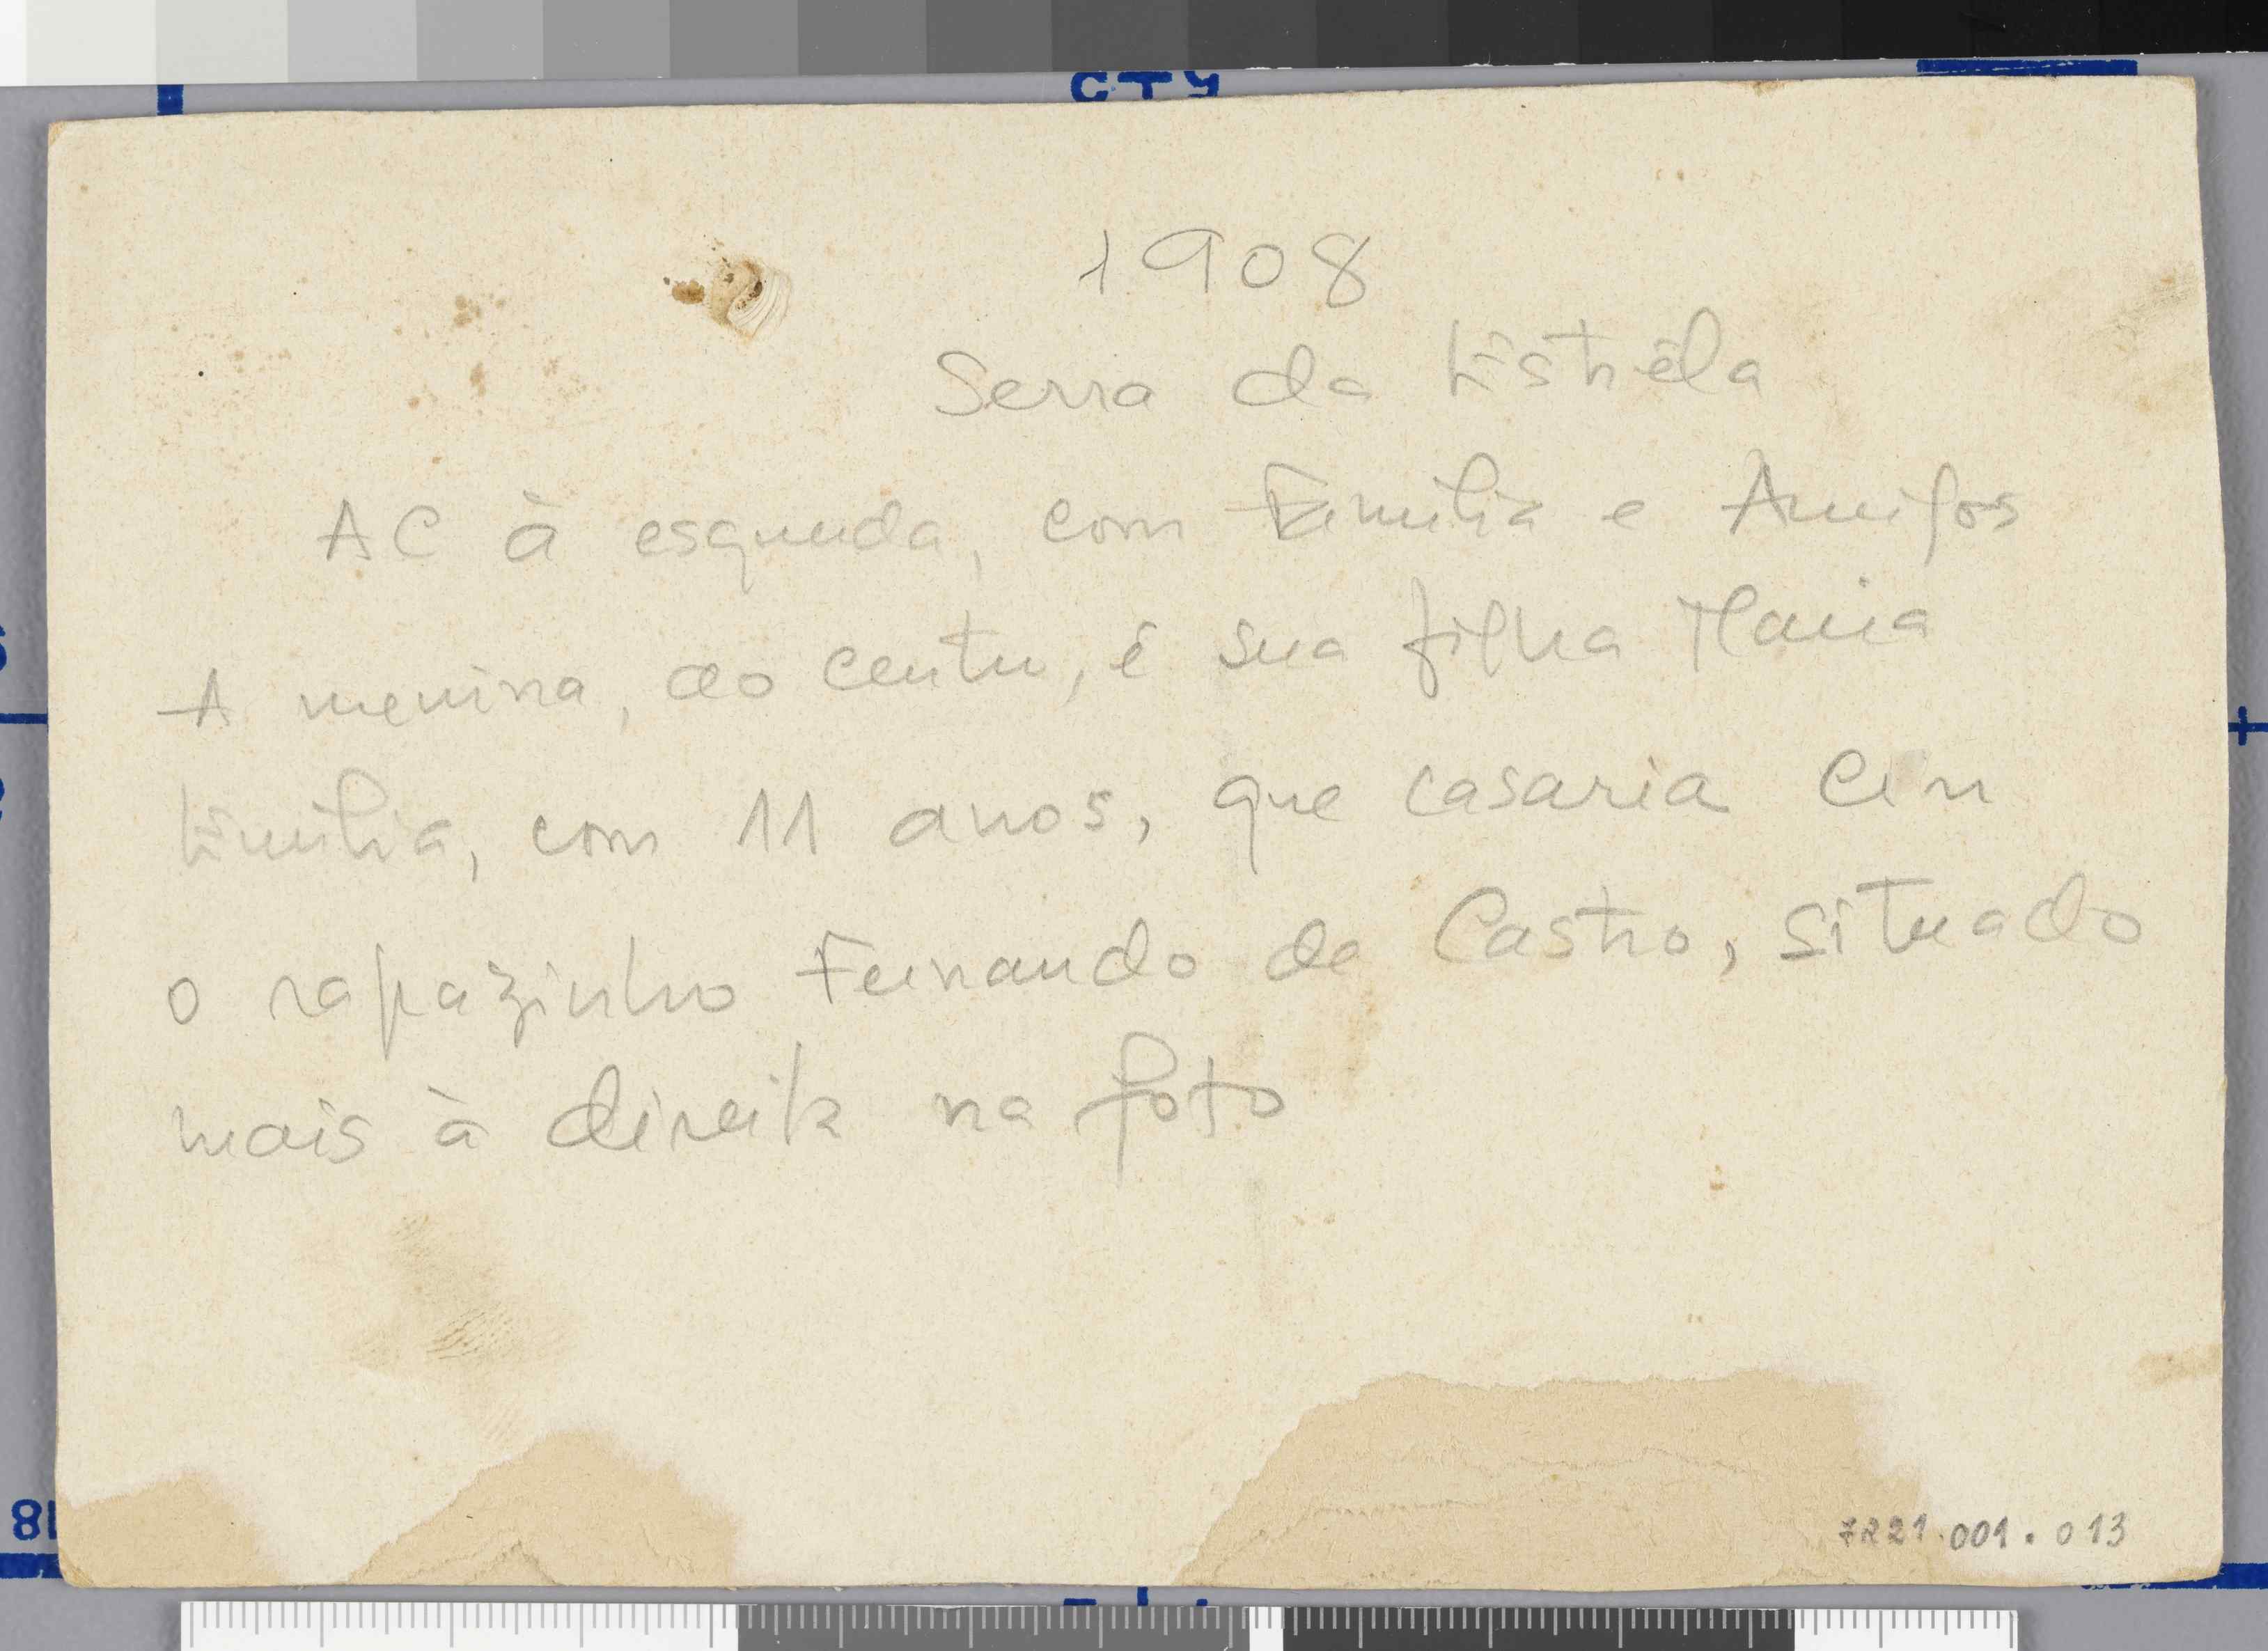 1908
Serra da Estrêla
AC à esquerda, com Família e Amigos
A menina, ao centro, é sua filha Maria
Emília, com 11 anos, que casaria com
o rapazinho Fernando de Castro, situado
mais à direita na foto
7221.001.013
18